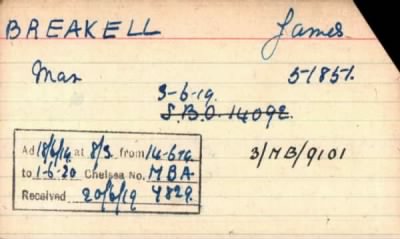 BREAKELL James
Man 51851.
3-6-19.
S.B.O. 14092.
3/MB/9101
Ad 18/6/19 at 8/3 from 14-6-19
to 1-6-20 Chelsea No. MBA
Received 20/6/19 4829.